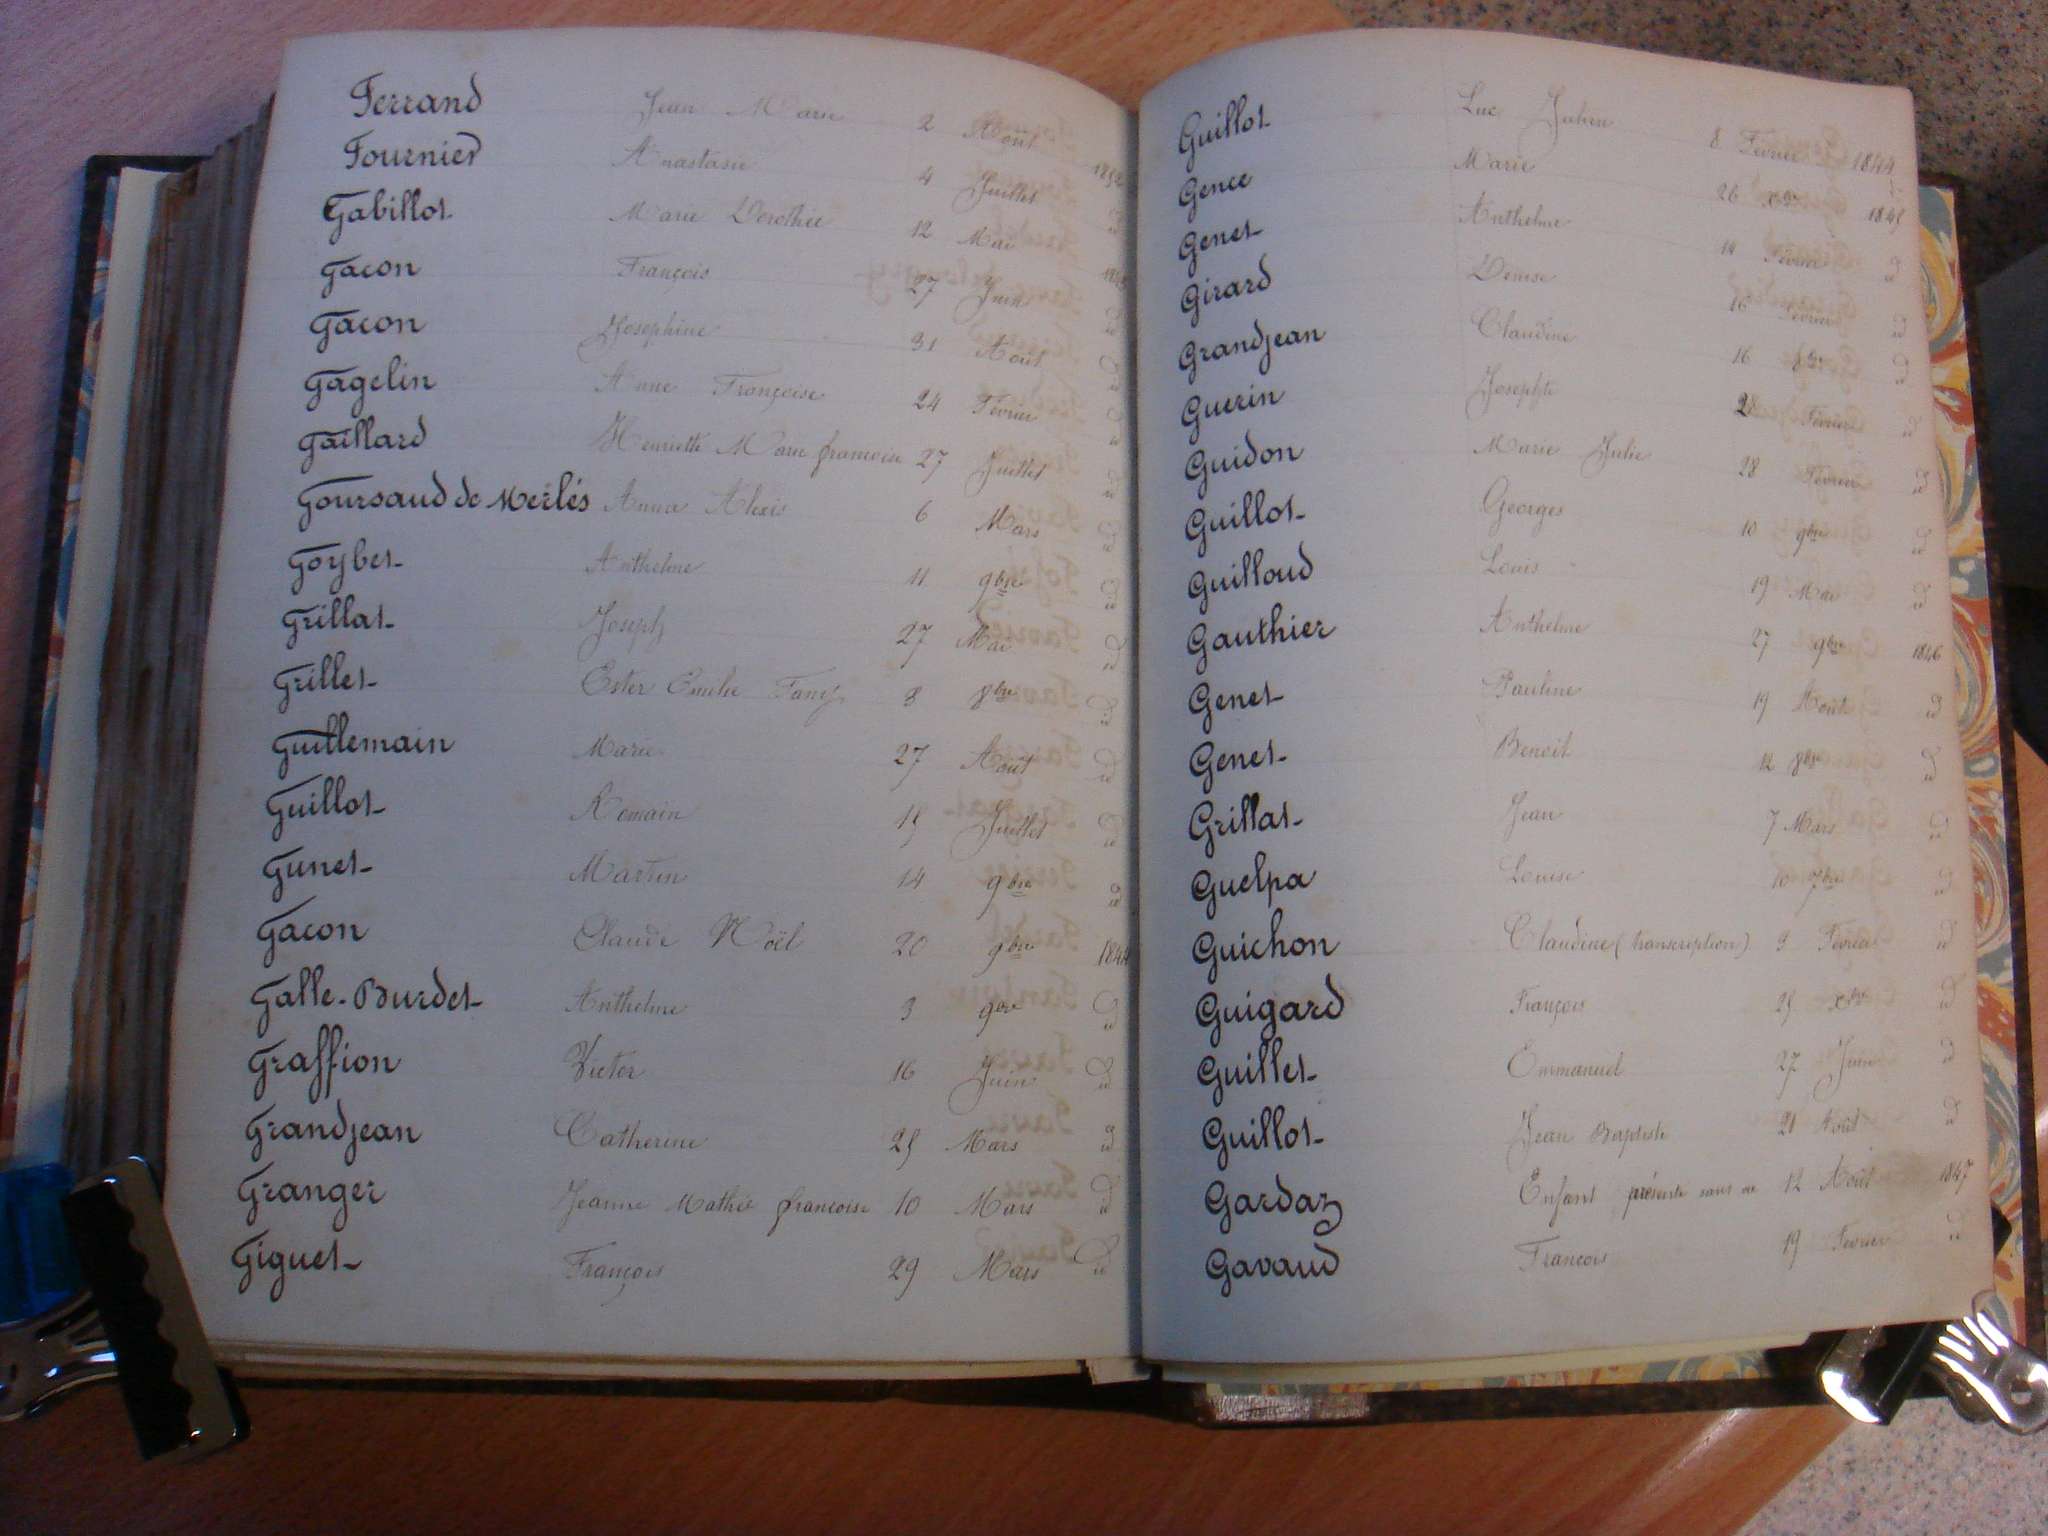 Ferrand Jean Marie 2 Août
Fournier Anastasie 4 Juillet id
Gabillot Marie Dorothée 12 Mai
Gacon François 27 Juin id
Gacon Josephine 31 Août id
Gagelin Anne Françoise 24 Février id
Gaillard Henriette Marie francoise 27 Juillet id
Goursaud de Merlés Anna Alexis 6 Mars id
Goybet Anthelme 11 9bre id
Grillat Joseph 27 Mai id
Grillet Ester Emilie Fany 8 8bre id
Guillemain Marie 27 Août id
Guillot Romain 15 Juillet id
Gunet Martin 14 9bre id
Gacon Claude Noël 20 9bre 1844
Galle-Burdet Anthelme 3 9bre id
Graffion Victor 16 Juin id
Grandjean Catherine 25 Mars id
Granger Jeanne Mathée francoise 10 Mars id
Giguet François 29 Mars id
Guillot Luc Julien 8 Février 1844
Gence Marie 26 xbre 1845
Genet Anthelme 14 Février id
Girard Denise 16 Février id
Grandjean Claudine 16 8bre id
Guerin Josephte 28 Février id
Guidon Marie Julie 28 Février id
Guillot Georges 10 9bre id
Guilloud Louis 19 Mai id
Gauthier Anthelme 27 9bre 1846
Genet Pauline 19 Août id
Genet Benoit 12 8bre id
Grillat Jean 7 Mars id
Guelpa Louise 10 7bre id
Guichon Claudine (transcription) 9 Février id
Guigard François 25 xbre id
Guillet Emmanuel 27 Juin id
Guillot Jean Baptiste 21 Août id
Gardaz Enfant présenté sans vie 12 Août 1847
Gavaud Francois 19 Février id